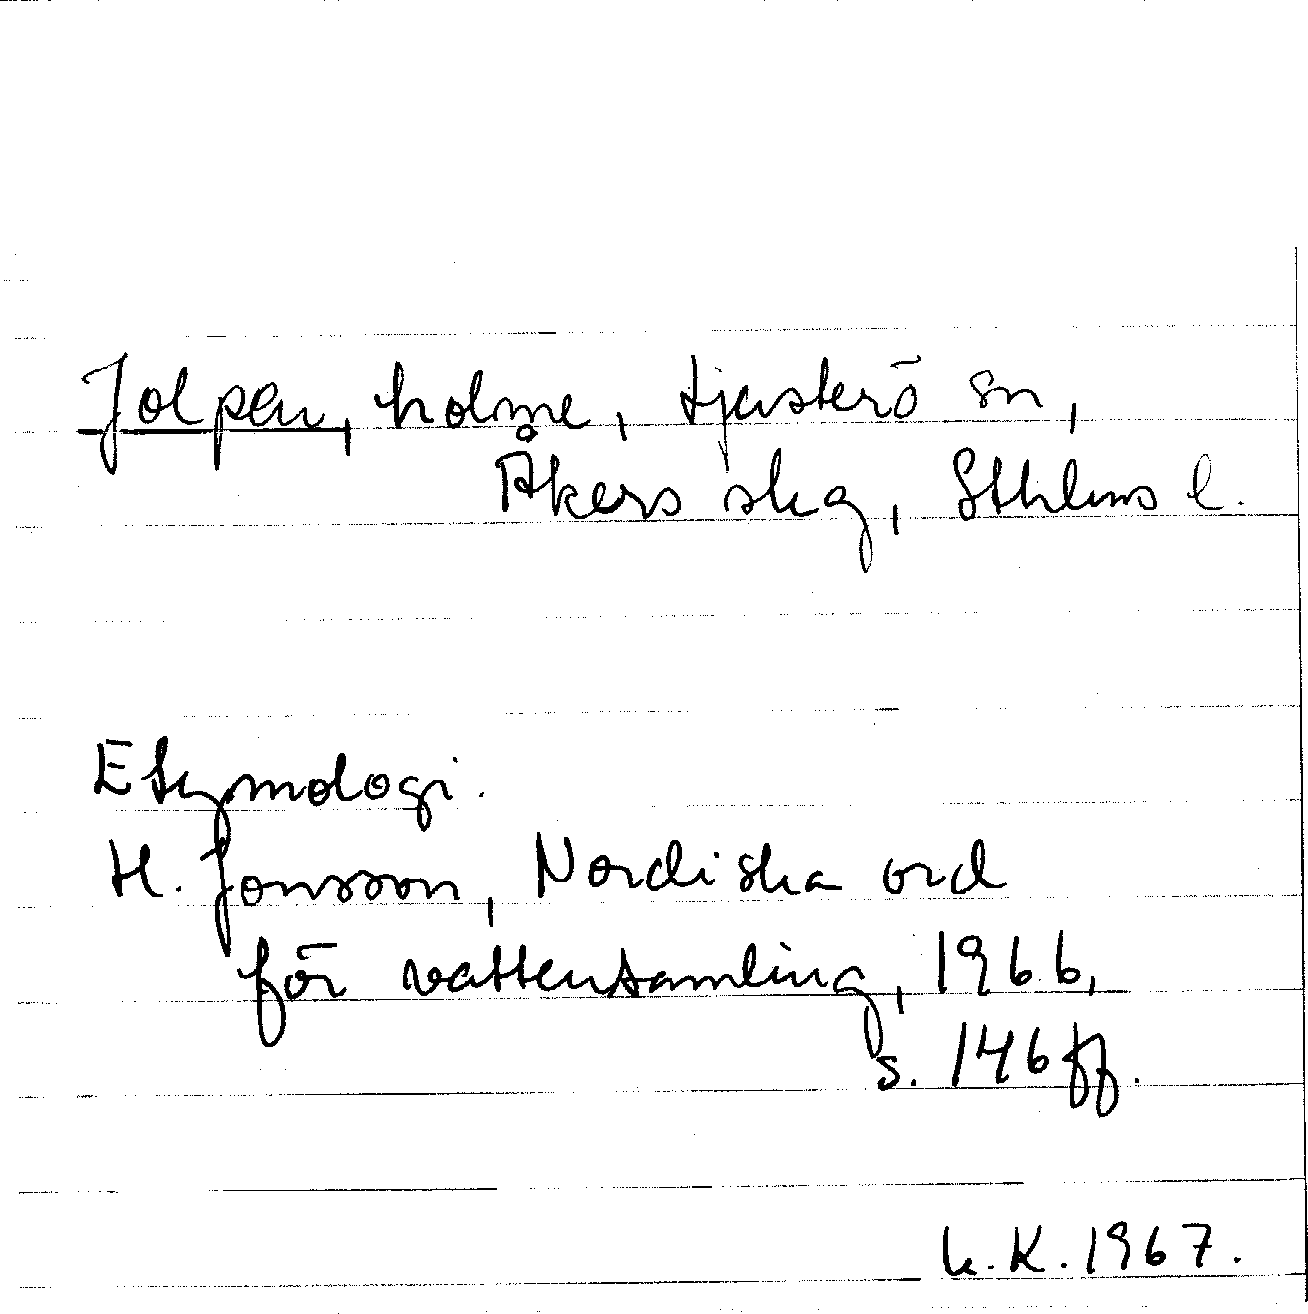 Jolpen, holme, Ljusterö sn,
Åkers skg, Sthlms l.
Etymologi.
H. Jonsson, Nordiska ord
för vattensamling, 1966,
s. 146 ff.
K.1967.